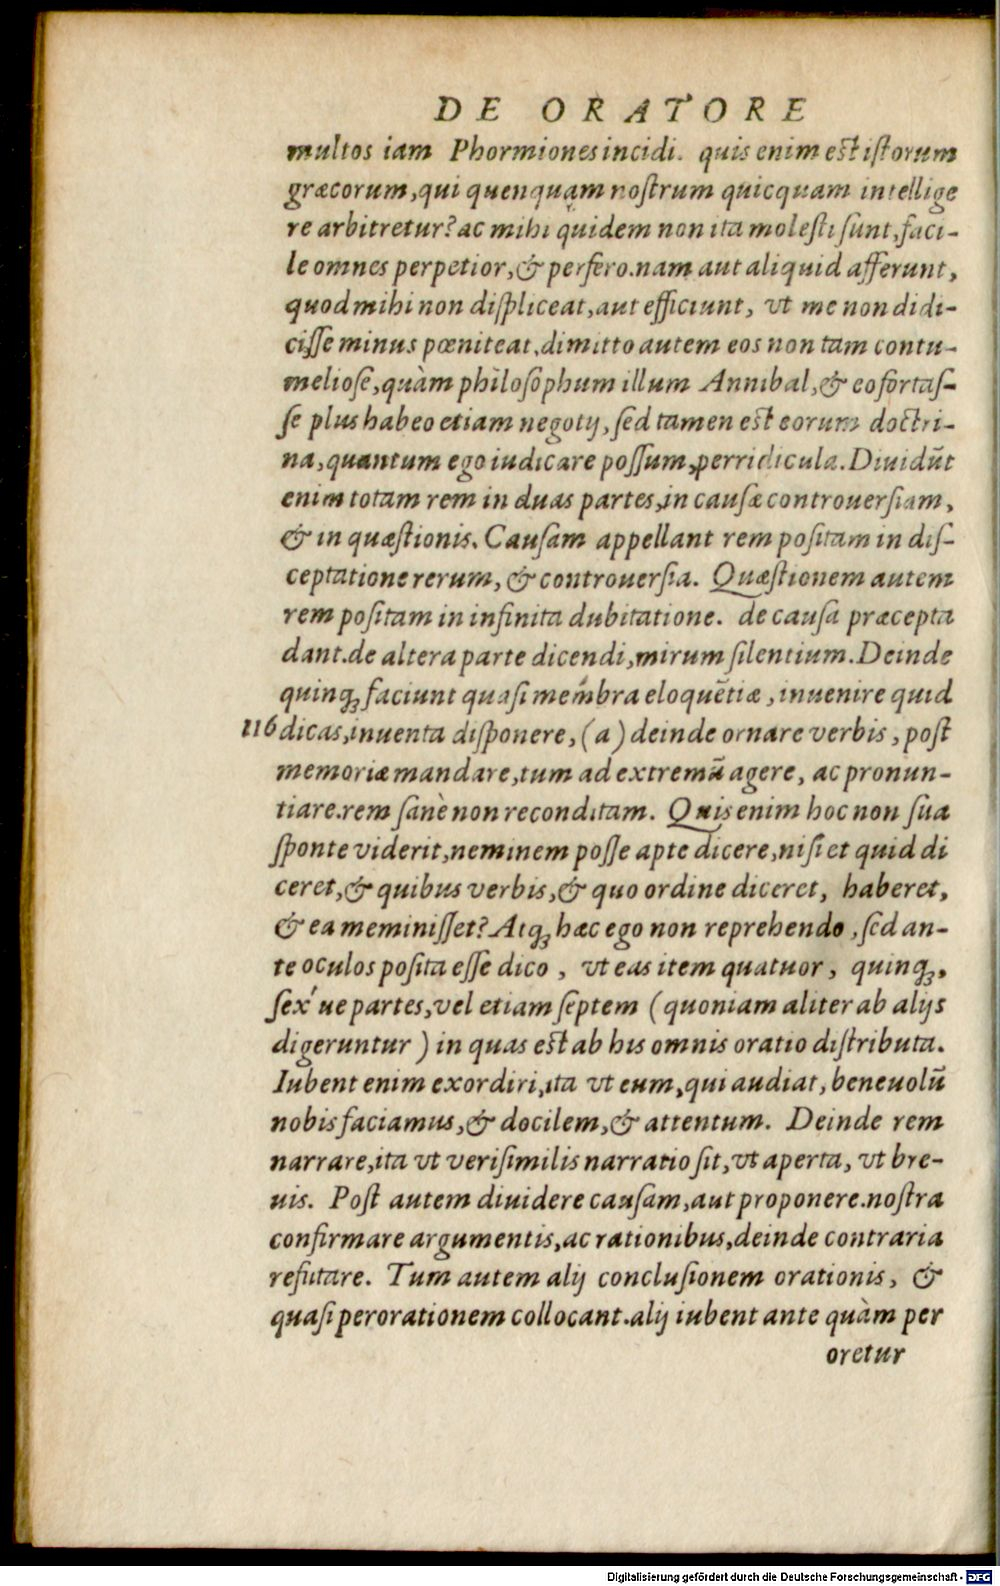 DE ORATORE
multos iam Phormiones incidi. quis enim est iſtorum
græcorum, qui quenquam noſtrum quicquam intellige
re arbitretur? ac mihi quidem non ita moleſti ſunt, faci-
le omnes perpetior, & perfero. nam aut aliquid afferunt,
quod mihi non diſpliceat, aut efficiunt, vt me non didi-
ciſſe minus pœniteat. dimitto autem eos non tam contu-
melioſe, quàm philoſophum illum Annibal, & eo fortaſ-
ſe plus habeo etiam negotij, ſed tamen est eorum doctri-
na, quantum ego iudicare poſſum, perridicula. Diuidūt
enim totam rem in duas partes, in cauſæ controuerſiam,
& in quæſtionis. Cauſam appellant rem poſitam in diſ-
ceptatione rerum, & controuerſia. Quæſtionem autem
rem poſitam in infinita dubitatione. de cauſa præcepta
dant. de altera parte dicendi, mirum ſilentium. Deinde
quinqꝫ faciunt quaſi membra eloquētiæ, inuenire quid
116 dicas, inuenta diſponere, (a) deinde ornare verbis, poſt
memoriæ mandare, tum ad extremū agere, ac pronun-
tiare. rem ſanè non reconditam. Quis enim hoc non ſua
ſponte viderit, neminem poſſe apte dicere, niſi et quid di
ceret, & quibus verbis, & quo ordine diceret, haberet,
& ea meminiſſet? Atqꝫ hæc ego non reprehendo, ſed an-
te oculos poſita eſſe dico, vt eas item quatuor, quinqꝫ,
ſex' ue partes, vel etiam ſeptem (quoniam aliter ab alijs
digeruntur) in quas est ab his omnis oratio diſtributa.
Iubent enim exordiri, ita vt eum, qui audiat, beneuolū
nobis faciamus, & docilem, & attentum. Deinde rem
narrare, ita vt veriſimilis narratio ſit, vt aperta, vt bre-
uis. Poſt autem diuidere cauſam, aut proponere. noſtra
confirmare argumentis, ac rationibus, deinde contraria
refutare. Tum autem alij concluſionem orationis, &
quaſi perorationem collocant. alij iubent ante quàm per
oretur
Digitalisierung gefördert durch die Deutsche Forschungsgemeinschaft - DFG